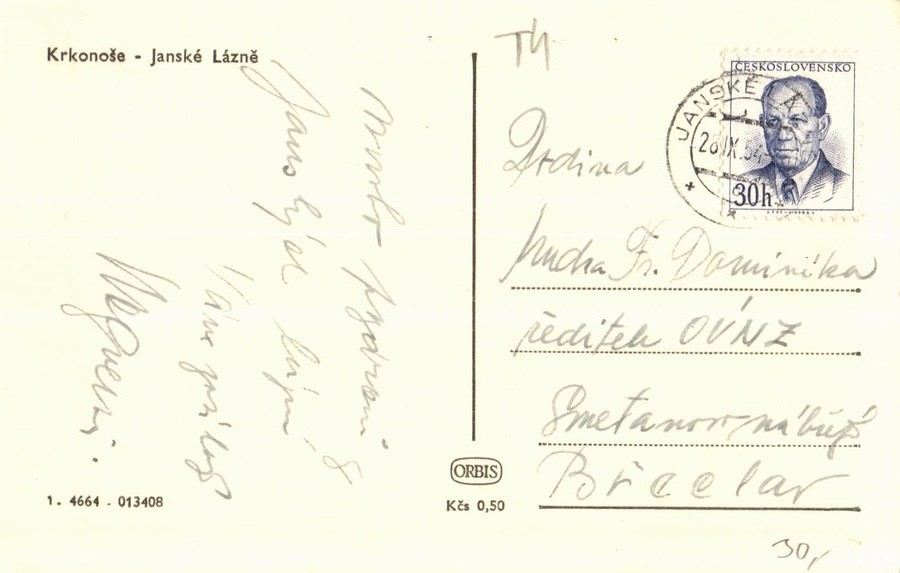 Krkonoše - Janské Lázně
Mnoho pozdravů z
Janských Lázní
Vám posílají
TH
ČESKOSLOVENSKO
30h
JANSKÉ LÁ
28.IX.54
Rodina
Mudra Fr. Dominika
ředitele OÚNZ
Smetanovo nábřeží
Břeclav
ORBIS
1. 4664 - 013408
Kčs 0,50
30,-